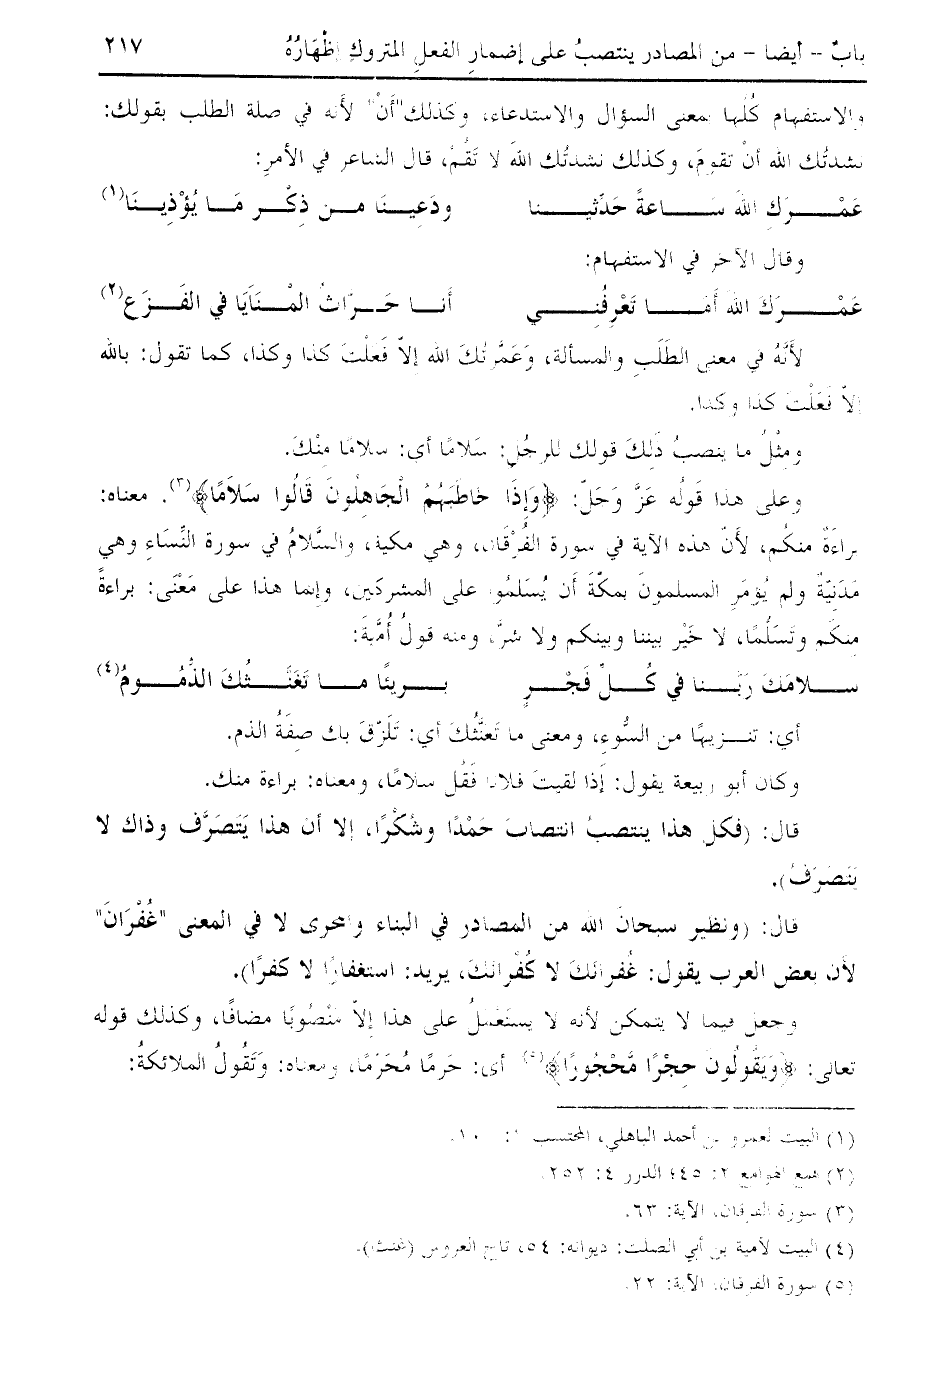 بابٌ -- أيضا - من المصادر ينتصبُ على إضمارِ الفعلِ المتروكِ إظْهَارُهُ ٢١٧
والاستفهام كُلُّها بمعنى السؤال والاستدعاء، وكذلك "أَنْ" لأنه في صلة الطلب بقولك:
نشدتُك الله أنْ تقومَ، وكذلك نشدتُك اللهَ لا تَقُمْ، قال الشاعر في الأمرِ:
عَمْرَكِ اللهَ سَاعةً حَدِّثينا ودَعِينَا من ذِكْرِ مَا يُؤْذِينَا(١)
وقال الآخر في الاستفهام:
عَمْرَكِ اللهَ أَمَا تَعْرِفُني أنا حَرّاثُ الْمنَايَا في الفَزَعِ(٢)
لأَنَّهُ في معنى الطَّلَبِ والمسألة، وَعَمَّرْتُكَ الله إلاّ فَعلْتَ كذا وكذا، كما تقول: بالله
إلاّ فَعَلْتَ كذا وكذا.
ومثْلُ ما ينصبُ ذَلِكَ قولك للرجُل: سَلامًا أى: سلامًا منْكَ.
وعلى هذا قَولُه عَزَّ وَجَلّ: ﴿وَإِذَا خَاطَبَهُمُ الْجَاهِلُونَ قَالُوا سَلاَمًا﴾(٣). معناه:
براءَةً منكُم، لأَنّ هذه الآية في سورة الفُرْقَان، وهي مكية، والسَّلامُ في سورة النِّسَاءِ وهي
مَدَنيّةٌ ولم يُؤمَرِ المسلمونَ بمكّةَ أن يُسَلمُوا على المشركين، وإنما هذا على مَعْنَى: براءةً
منكم وتَسَلُّمًا، لا خَيْر بيننا وبينكم ولا شرَّ، ومنه قولُ أُمَيَّةَ:
سلامَكَ رَبَّنا في كُلِّ فَجْرٍ بريئًا ما تَغَنَّثُكَ الذُّمُومُ(٤)
أي: تنزيهًا من السُّوءِ، ومعنى ما تَغنَّثُكَ أي: تَلَزّقَ بك صِفَةُ الذم.
وكان أبو ربيعة يقول: إذا لقيتَ فلانا فَقُل سلامًا، ومعناه: براءة منك.
قال: (فكل هذا ينتصبُ انتصابَ حَمْدًا وشُكْرًا، إلا أن هذا يَتَصَرَّف وذاك لا
يَتَصَرَفُ).
قال: (ونظير سبحانَ الله من المصادر في البناء والمجرى لا في المعنى "غُفْرَانَ"
لأن بعض العرب يقول: غُفرانَكَ لا كُفْرانَكَ، يريد: استغفارًا لا كفرًا).
وجعل فيما لا يتمكن لأنه لا يستعملُ على هذا إلاّ مَنْصُوبًا مضافًا، وكذلك قوله
تعالى: ﴿وَيَقُولُونَ حِجْرًا مَّحْجُورًا﴾(٥) أى: حَرمًا مُحَرّمًا، ومعناه: وَتَقُولُ الملائكةُ:
(١) البيت لعمرو بن أحمد الباهلي، المحتسب ١:
(٢) همع الهوامع ٢: ٤٥؛ الدرر ٤: ٢٥٢.
(٣) سورة الفرقان، الآية: ٦٣.
(٤) البيت لأمية بن أبي الصلت: ديوانه: ٥٤، تاج العروس (غنث).
(٥) سورة الفرقان، الآية: ٢٢.